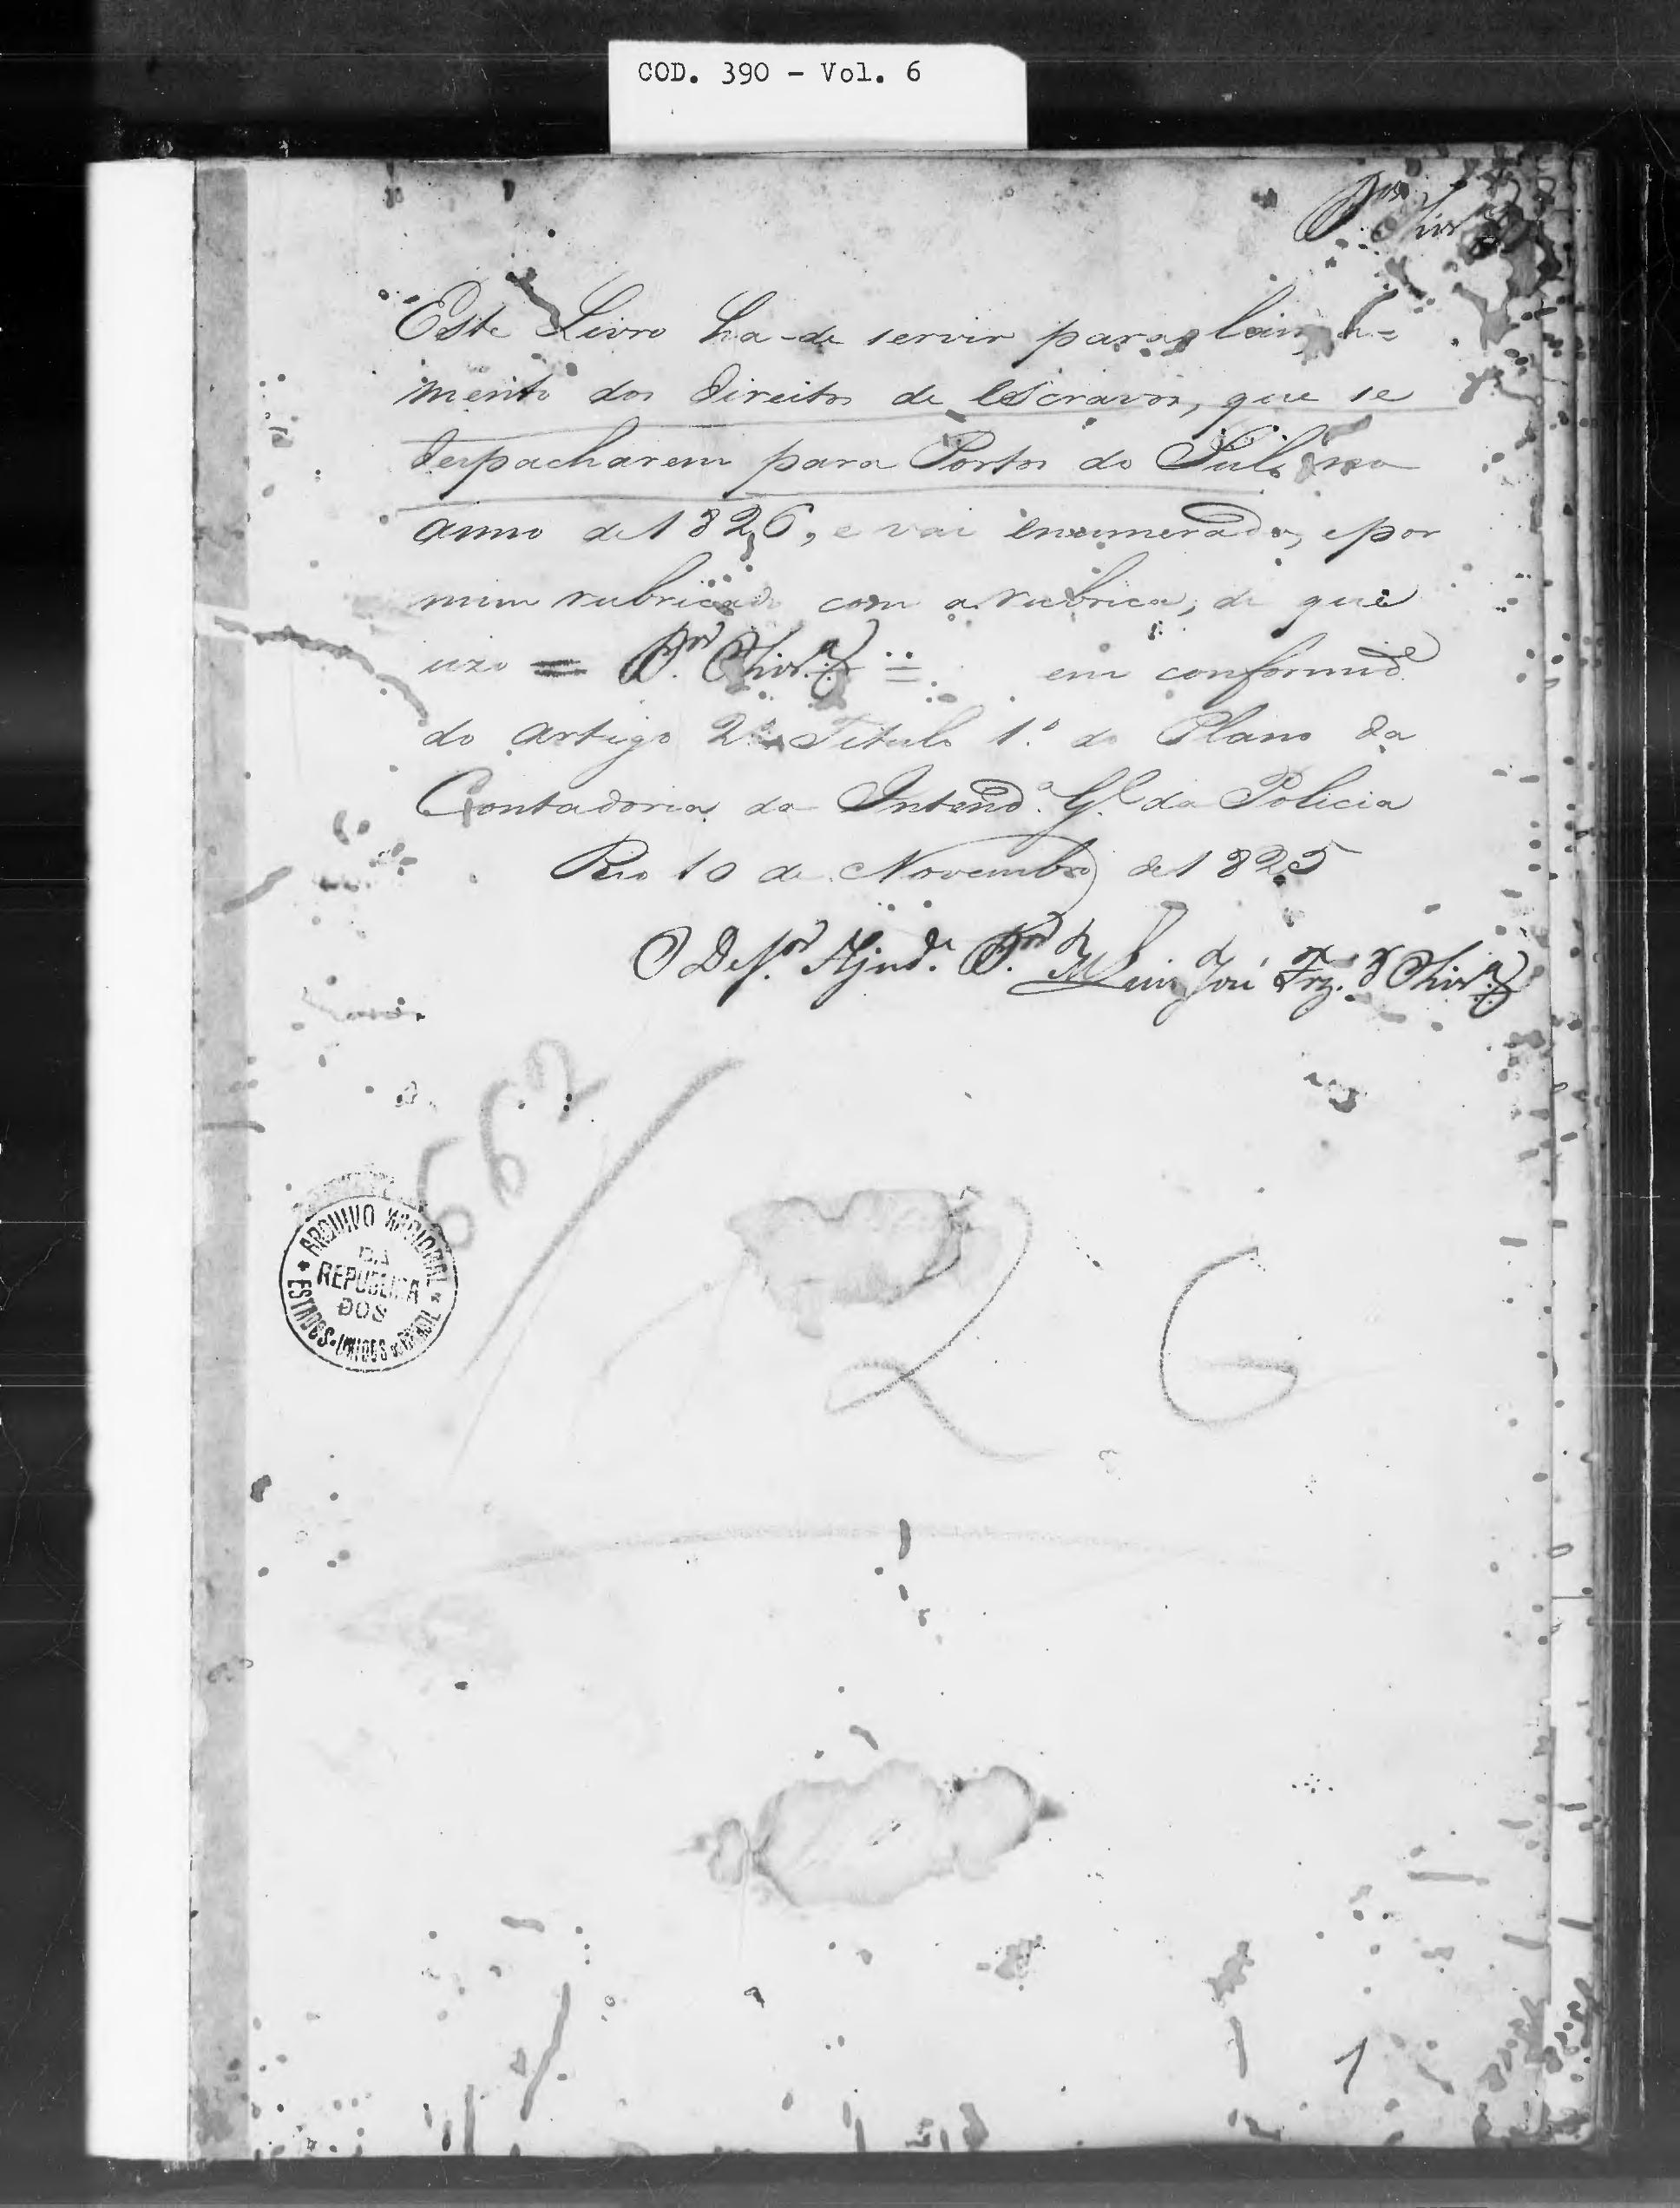 COD. 390 - Vol. 6
Este Livro ha-de servir para o lança=
mento dos Direitos de Escravos, que se
despacharem para Portos do Sul, no
anno de 1826, e vai enumerado, e por
mim rubricado com a rubrica, de que
uzo = Oliv.ª =: em conformid.e
do Artigo 2º Titulo 1.º do Plano da
Contadoria da Intend.ª G.l da Policia
Rio 10 de Novembro de 1825
O Des.or Ajud.e Luiz José Frz. d' Oliv.ª
662
ARQUIVO NACIONAL
DA
REPUBLICA
DOS
ESTADOS-UNIDOS DO BRASIL
2 6
1